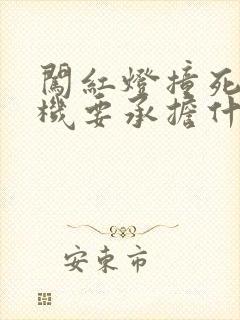 闖紅燈撞死
機要承擔什
安東市